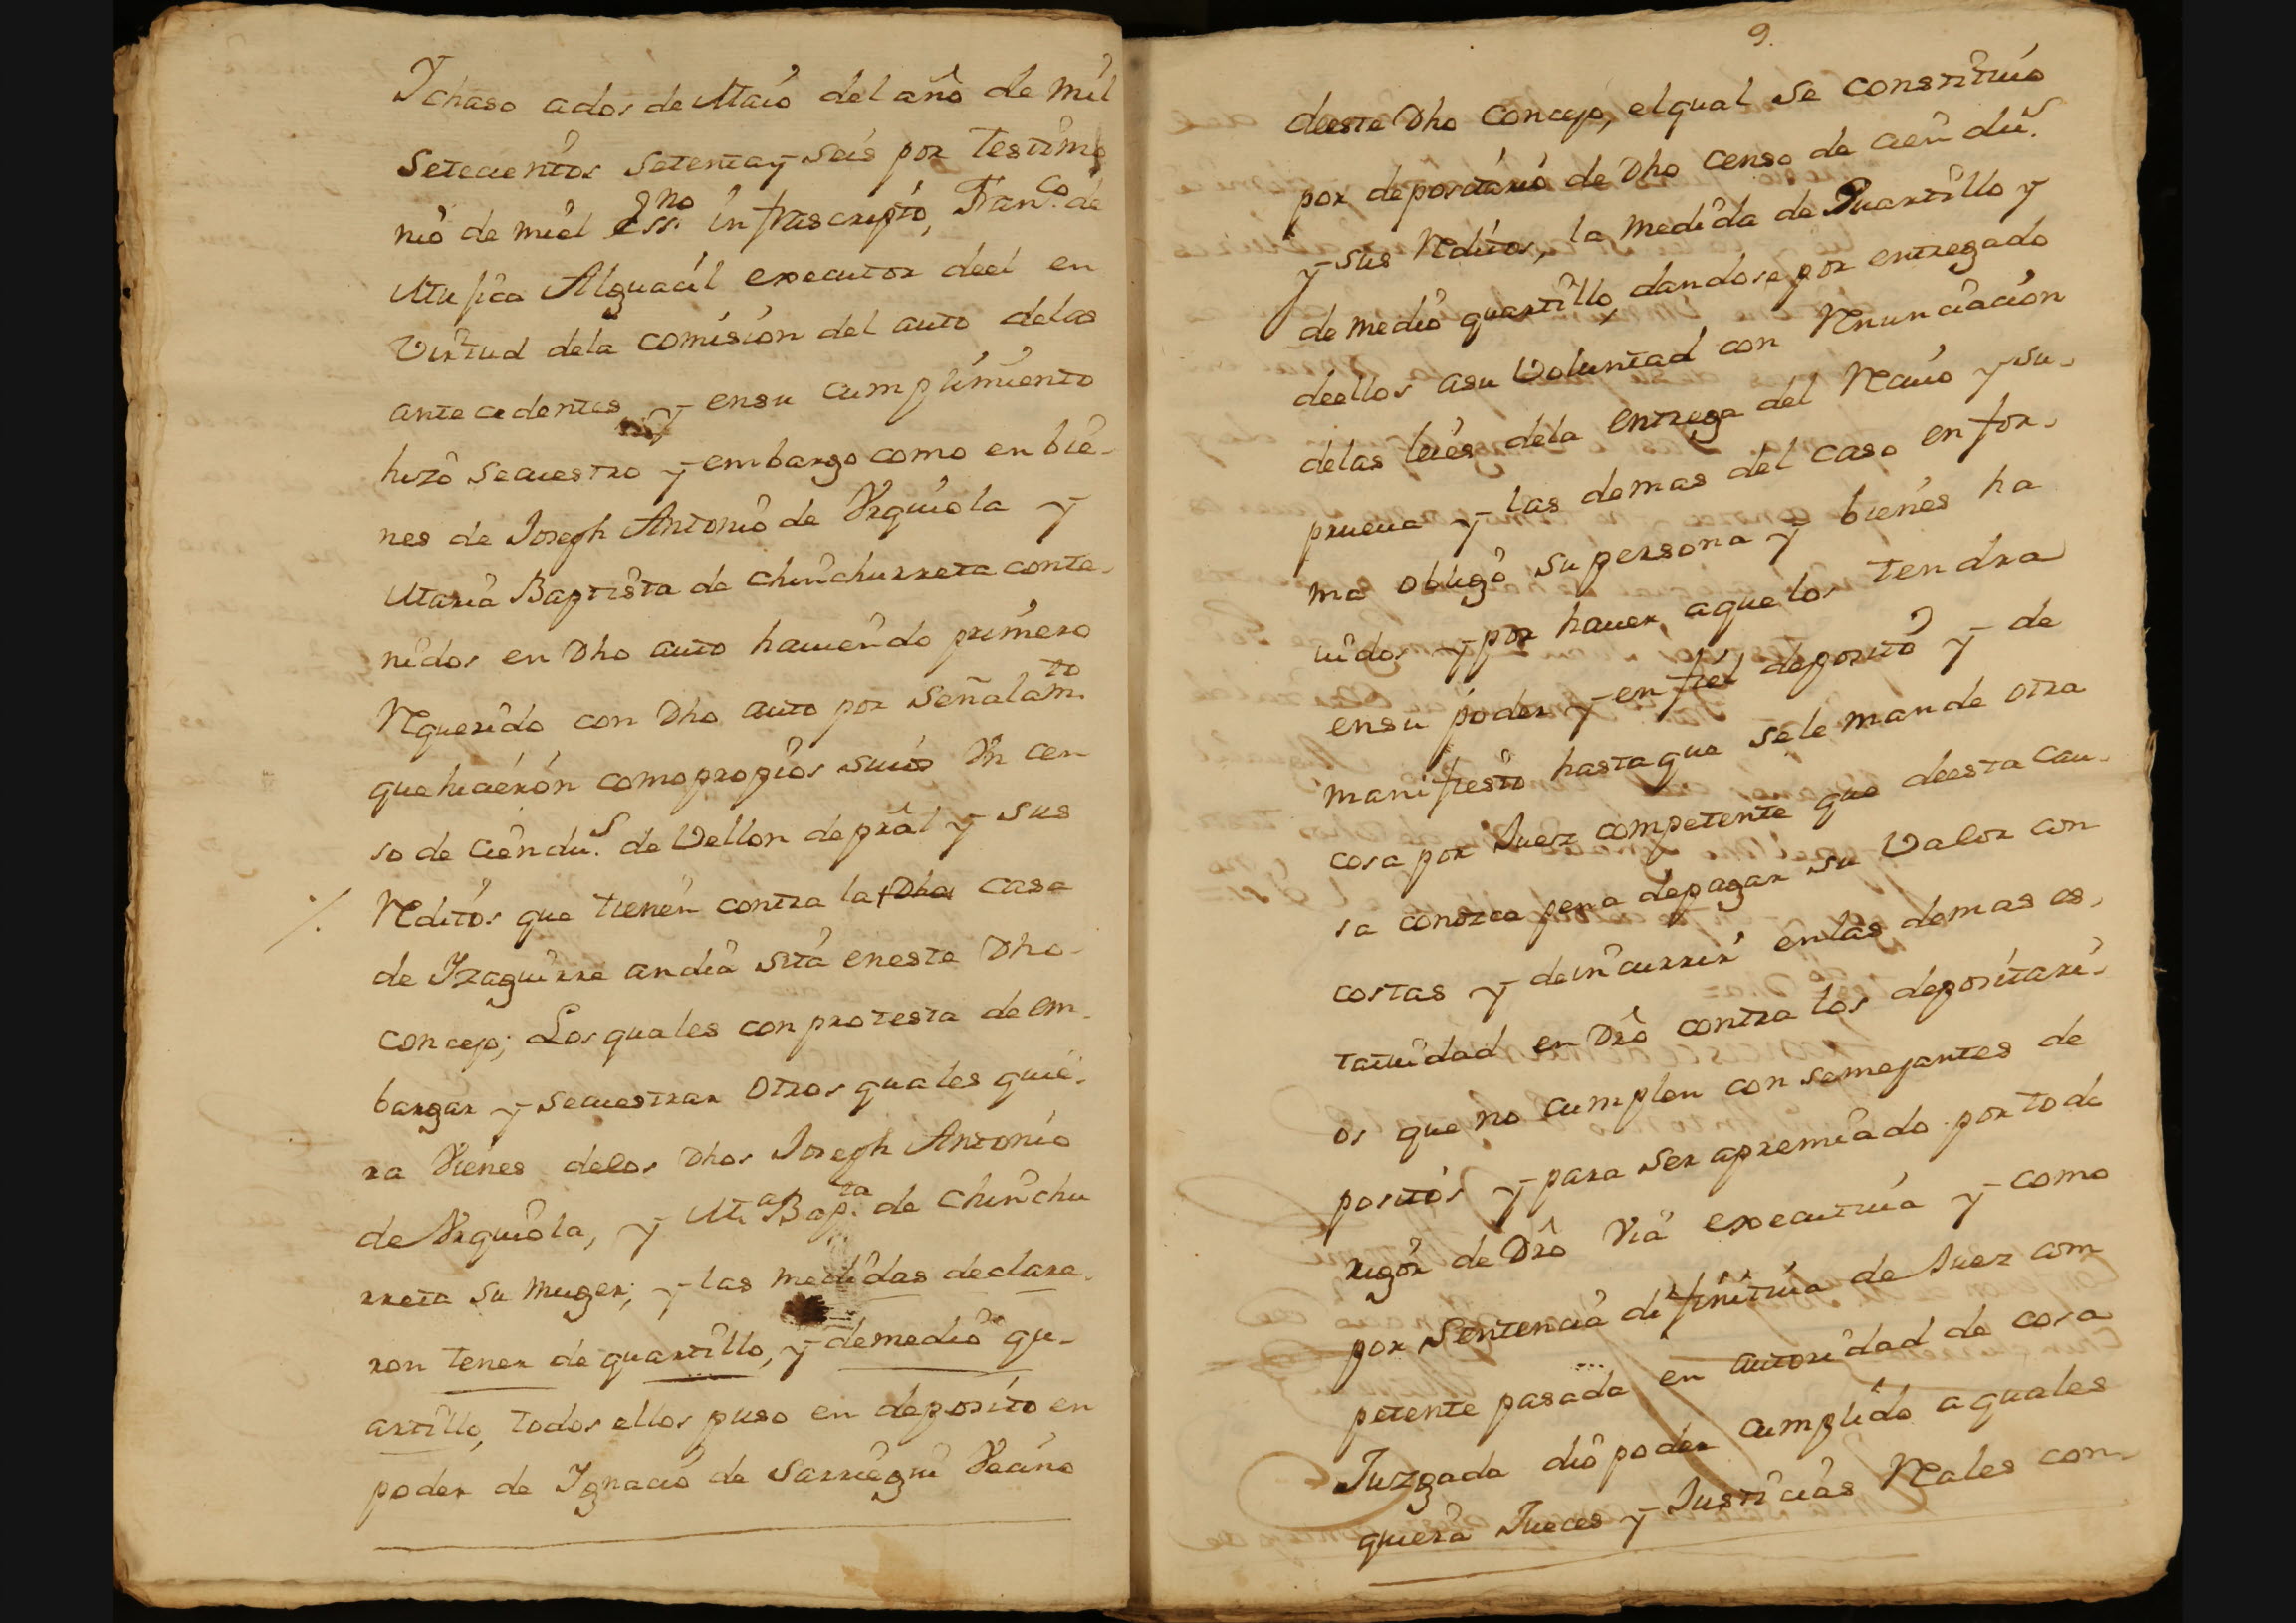 Ichaso a dos de Maio del año de mil
setecientos setenta y seis por testimo
nio de miel Essno infrascripto, Franco de
Mujica Alguacil executor deel en
Virtud dela comision del auto delas
antecedentes, y ensu cumplimiento
hizo secuestro y embargo como en bie-
nes de Joseph Antonio de Vrquiola y
Maria Baptista de Chinchurreta conte-
nidos en Dho auto haviendo primero
Requerido con Dho auto por señalamto
que hicieron como propios suios Vn cen
so de cien dus de Vellon de pral y sus
Reditos que tienen contra la Dha casa
de Izaguirre andia sita eneste Dho
concejo; Los quales con protesta de em-
bargar y secuestrar otros quales quie-
ra Vienes delos Dhos Joseph Antonio
de Vrquiola, y Ma Bapta de Chinchu
rreta su muger; y las medidas declara-
ron tener de quartillo, y demedio qu-
artillo, todos ellos puso en deposito en
poder de Ignacio de Sarriegui Vecino
9.
deeste Dho Concejo, elqual se constituio
por depositario de Dho censo de cien dus
y sus Reditos, la medida de Quartillo y
de medio quartillo, dandose por entregado
deellos asu Voluntad con Renunciacion
delas leies dela entrega del Recivo y su-
prueva y las demas del caso en for-
ma obligo su persona y bienes ha
vidos y por haver, aquelos tendra
ensu poder y en fiel deposito y de
manifiesto hasta que sele mande otra
cosa por Juez competente que deesta cau-
sa conozca pena depagar su Valor con
costas y deincurrir en las demas es-
tatuidad en Dro contra los depositari-
os que no cumplen con semejantes de
positos y para ser apremiado por todo
rigor de Dro Via executiva y como
por Sentencia difinitiva de Juez com
petente pasada en autoridad de cosa
Juzgada dio poder cumplido a quales
quiera Jueces y Justicias Reales con-